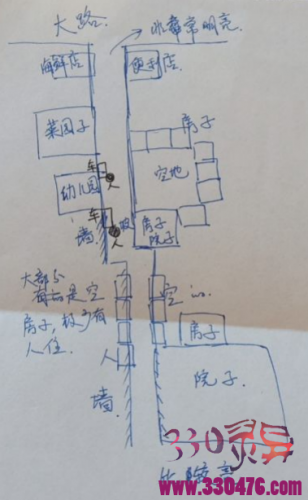 大路.
非常明亮.
海鲜店
便利店
房子
菜园子
空地
车
人
幼儿园
车
墙
人
房子
院子
大部分
是空
房子,极少有
人住.
空
房子
人
院子
墙.
330灵异
www.330476.com